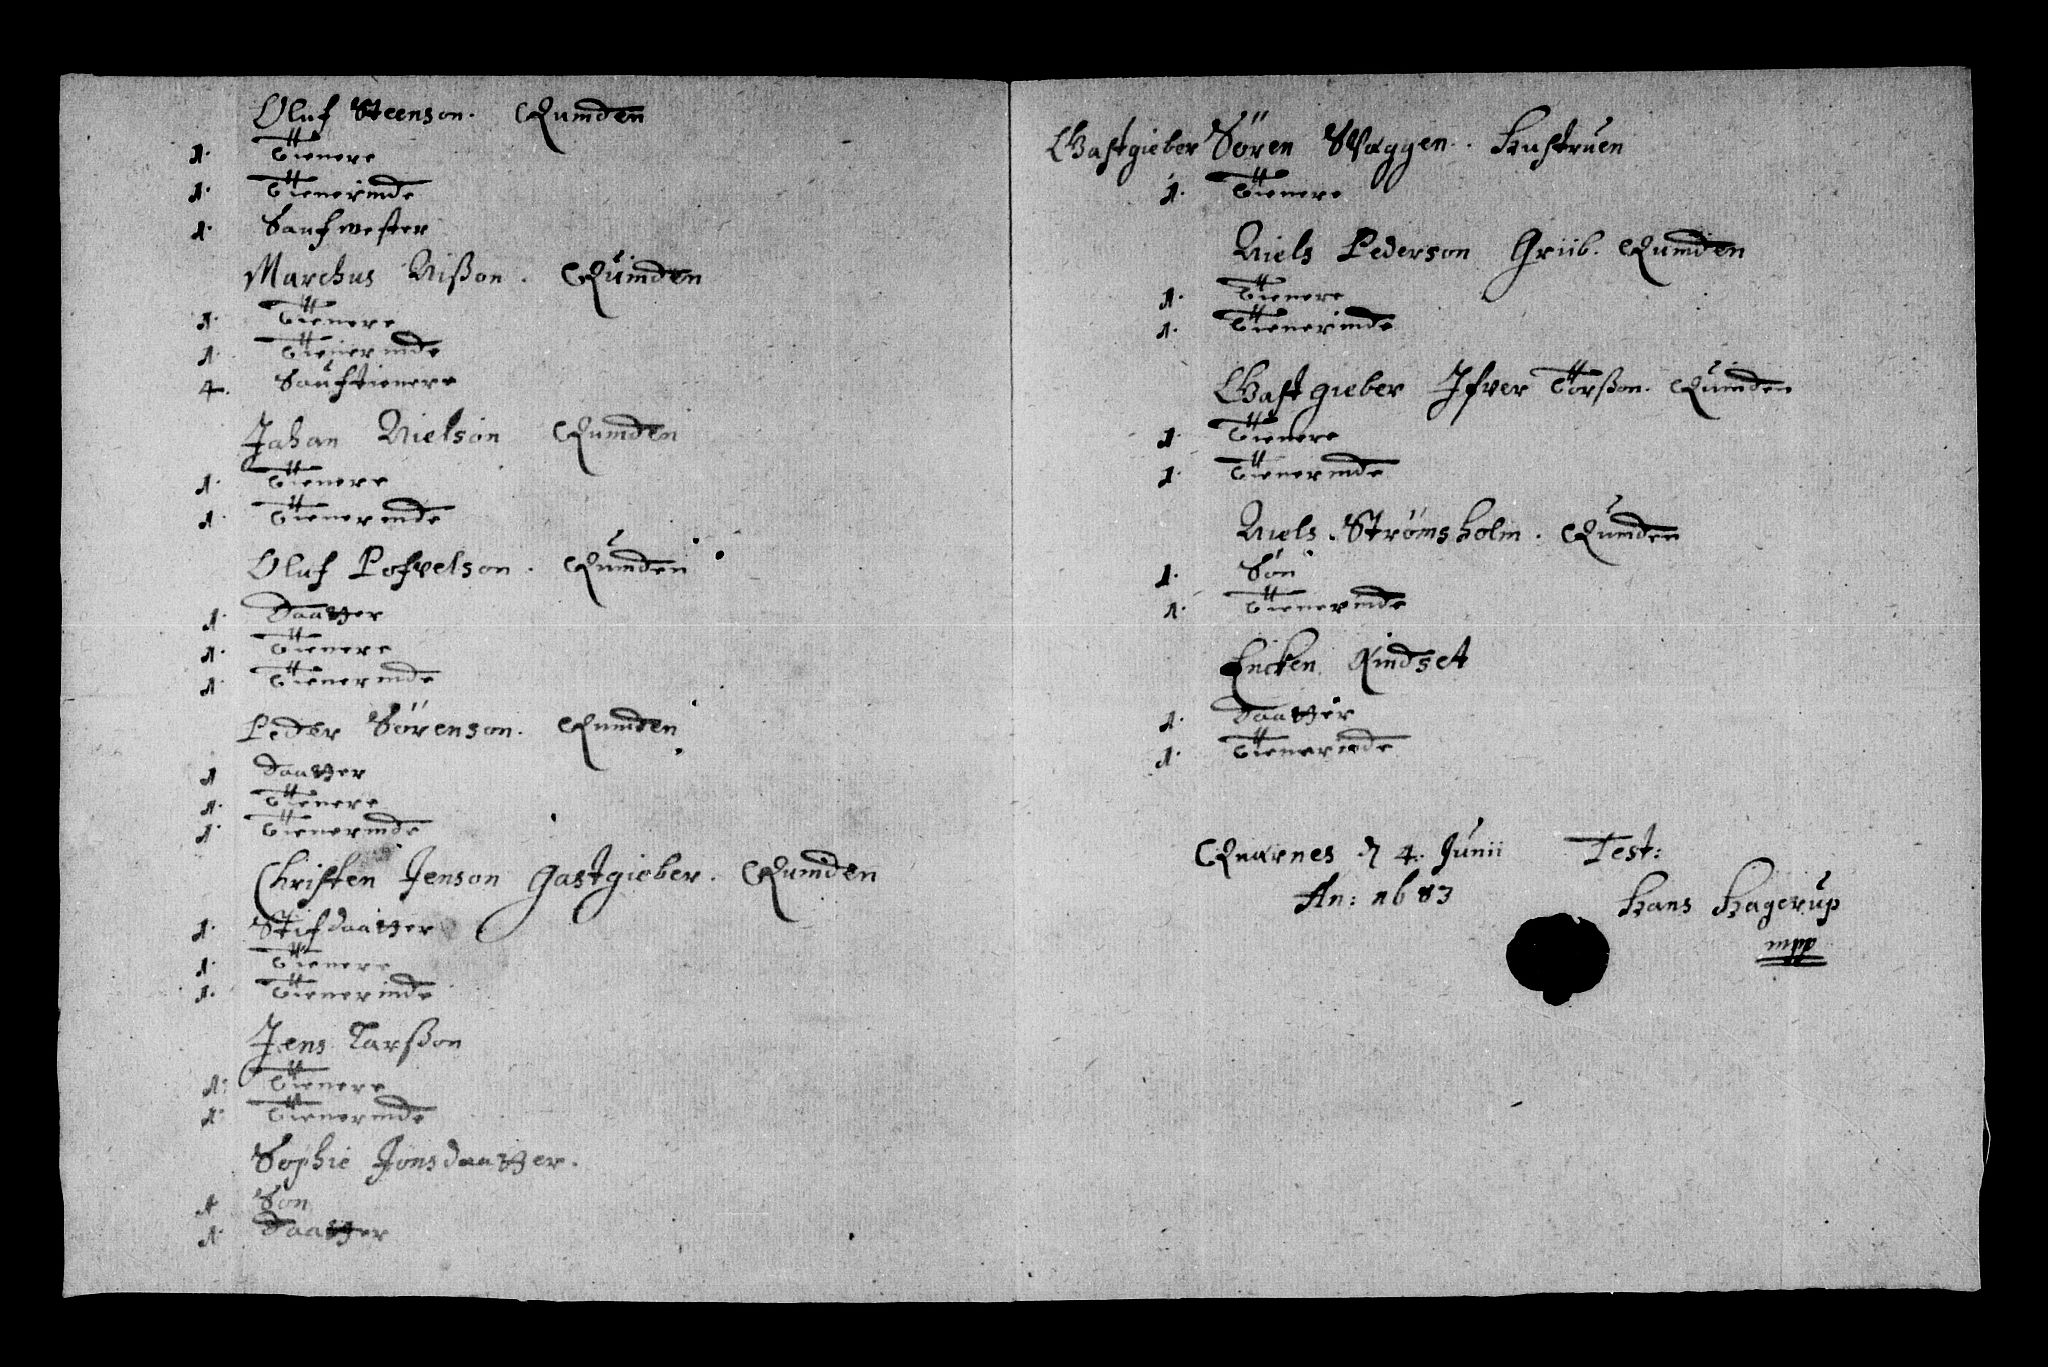 Oluf Steenson. Qvinden
1. Tienere
1. Tienerinde
1.
Marchus Nißon. Qvinden
1. Tienere
1. Tienerinde
4.
Johan Nielson Qvinden
1. Tienere
1. Tienerinde
Oluf Pofvelson. Qvinden
1. Daatter
1. Tienere
1. Tienerinde
Peder Sörenson. Qvinden
1 Daatter
1. Tienere
1. Tienerinde
Christen Jenson Gastgieber. Qvinden
1. Stifdaatter
1. Tienere
1. Tienerinde
Jens Larßon
1. Tienere
1. Tienerinde
Sophie Jonsdaatter.
1 Son
1. Daatter
Gastgieber Sören Hustruen
1. Tienere
Niels Pederson Griib. Qvinden
1. Tienere
1. Tienerinde
Gastgieber Ifver Torßon. Qvinden
1. Tienere
1. Tienerinde
Niels Strømsholm. Qvinden
1. Søn
1. Tienerinde
Encken Rindset
1. Daatter
1. Tienerinde
Qvernes d 4. Junii Test:
An: 1683 Hans Hagerup
mpp